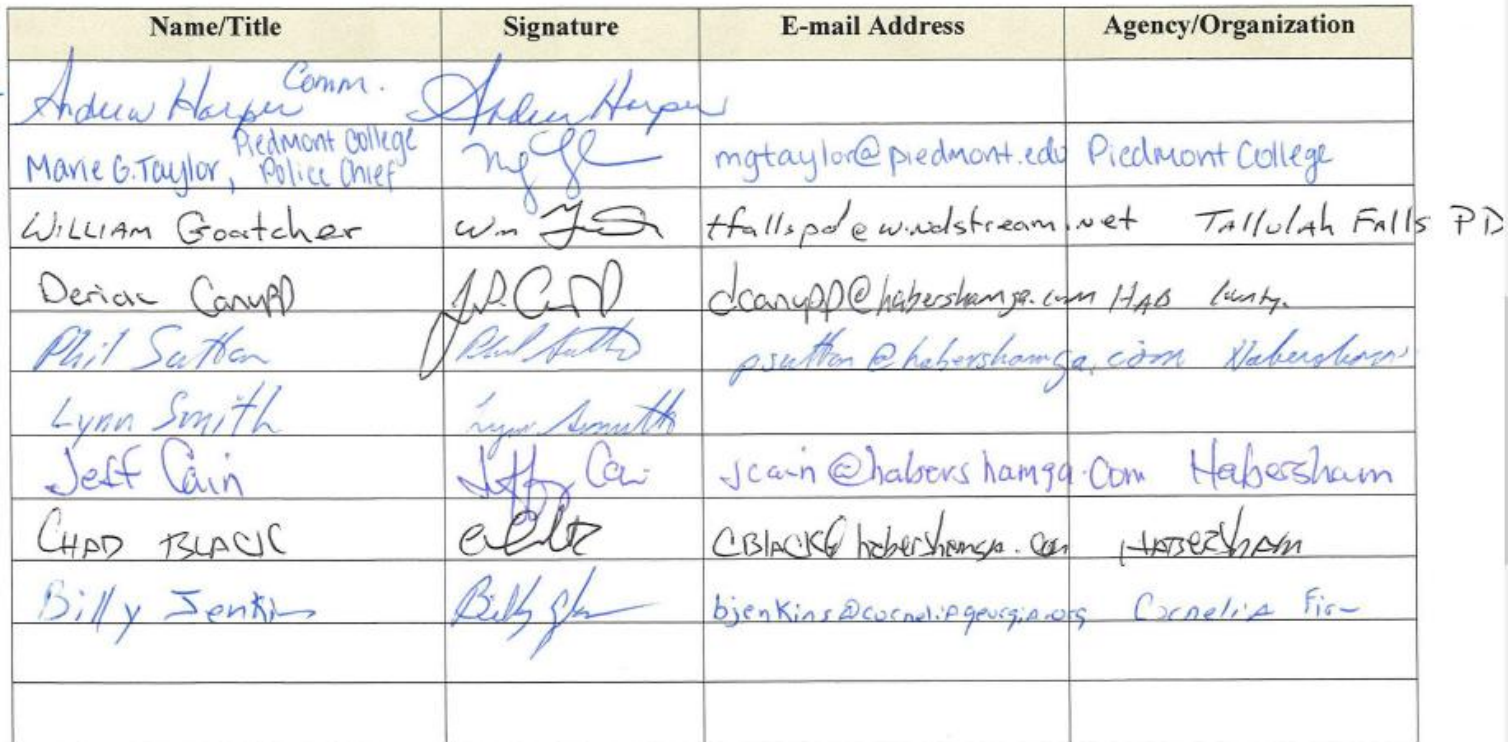 Name/Title Signature E-mail Address Agency/Organization
Andrew Harper Comm. Andrew Harper
Marie G. Taylor, Piedmont College Police Chief mgtaylor@piedmont.edu Piedmont College
WILLIAM Goatcher Wm tfallspd@windstream.net TAllulAh FAlls PD
Canupp dcanupp@habershamga.com HAB County.
Phil Sutton Phil Sutton psutton@habershamga.com Habersham
Lynn Smith Lynn Smith
Jeff Cain Jeffrey Cain jcain@habershamga.com Habersham
CHAD BLACK CBLACK@habershamga.com HABERSHAM
Billy Jenkins Billy bjenkins@corneliageorgia.org Cornelia Fire